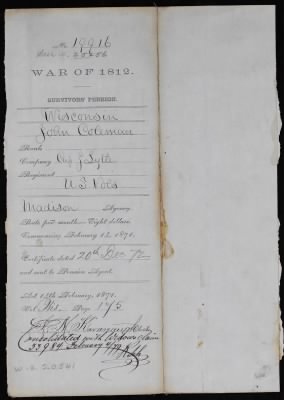 No 19916
WAR OF 1812.
SURVIVORS' PENSION.
Wisconsin
John Coleman
Rank
Company Capt J Lytle
Regiment
U S Vols
Madison Agency
Rate per month Eight dollars
Commencing February 14, 1871.
Certificate dated 20th Dec 72
and sent to Pension Agent.
Act 14th February, 1871.
Vol. Page 175
Clerk
Consolidated with Widows Claim
33984 February